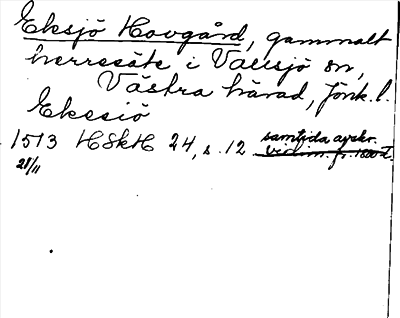 Eksjö Hovgård, gammalt
herresäte i Vallsjö sn,
Västra härad, Jönk. l.
Ekesiö
1513 HSkH 24, s. 12 samtida avskr.
21/11 vidim. fr. 1500 t.